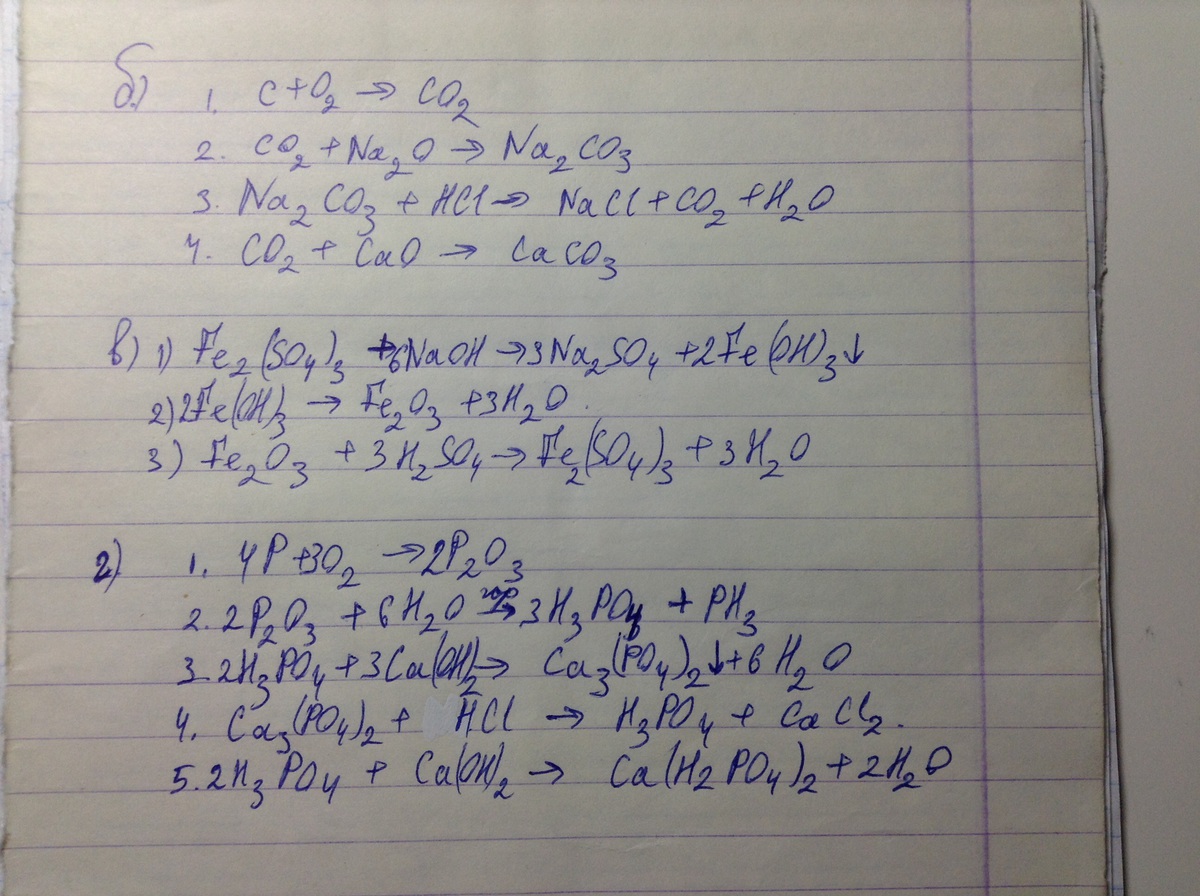 б) 1. C+O₂ → CO₂
2. CO₂ + Na₂O → Na₂CO₃
3. Na₂CO₃ + HCl → NaCl + CO₂ + H₂O
4. CO₂ + CaO → CaCO₃
в) 1) Fe₂(SO₄)₃ + 6NaOH → 3Na₂SO₄ + 2Fe(OH)₃↓
2) 2Fe(OH)₃ → Fe₂O₃ + 3H₂O
3) Fe₂O₃ + 3H₂SO₄ → Fe₂(SO₄)₃ + 3H₂O
г) 1. 4P + 3O₂ → 2P₂O₃
2. 2P₂O₃ + 6H₂O → 3H₃PO₄ + PH₃
3. 2H₃PO₄ + 3Ca(OH)₂ → Ca₃(PO₄)₂↓ + 6H₂O
4. Ca₃(PO₄)₂ + HCl → H₃PO₄ + CaCl₂.
5. 2H₃PO₄ + Ca(OH)₂ → Ca(H2PO₄)₂ + 2H₂O